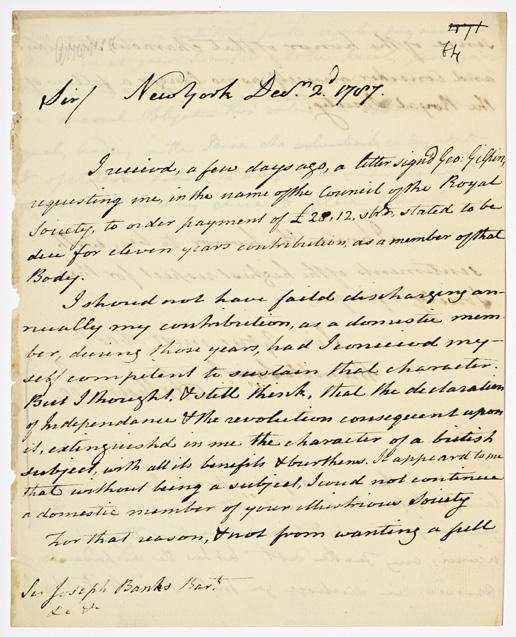 Sir/ New York Decr. 2d. 1787.
I receivd, a few days ago, a letter signd Geo: Gilpin,
requesting me, in the name of the Council of the Royal
Society, to order payment of £28,12, stated to be
due for eleven years contribution, as a member of that
Body.
I should not have faild discharging an-
nually my contribution, as a domestic mem-
ber, during those years, had I conceived my-
self competent to sustain that character.
But I thought, & still think, that the declaration
of Independance & the revolution consequent upon
it, extinguishd in me the character of a british
subject, with all its benefits & burthens. It appeard to me
that without being a subject, I coud not continue
a domestic member of your illustrious Society
For that reason, & not from wanting a full
Sir Joseph Banks Bart.
&c &c